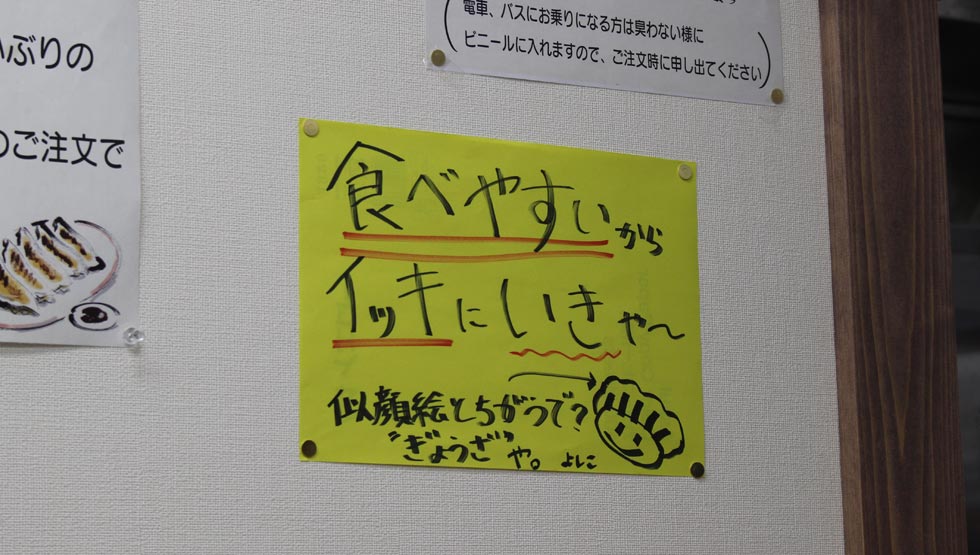 ぶりの
のご注文で
電車、バスにお乗りになる方は臭わない様に
ビニールに入れますので、ご注文時に申し出てください
食べやすいから
イッキにいきや〜
似顔絵とちがうで?
"ぎょうざ"や。 よしこ